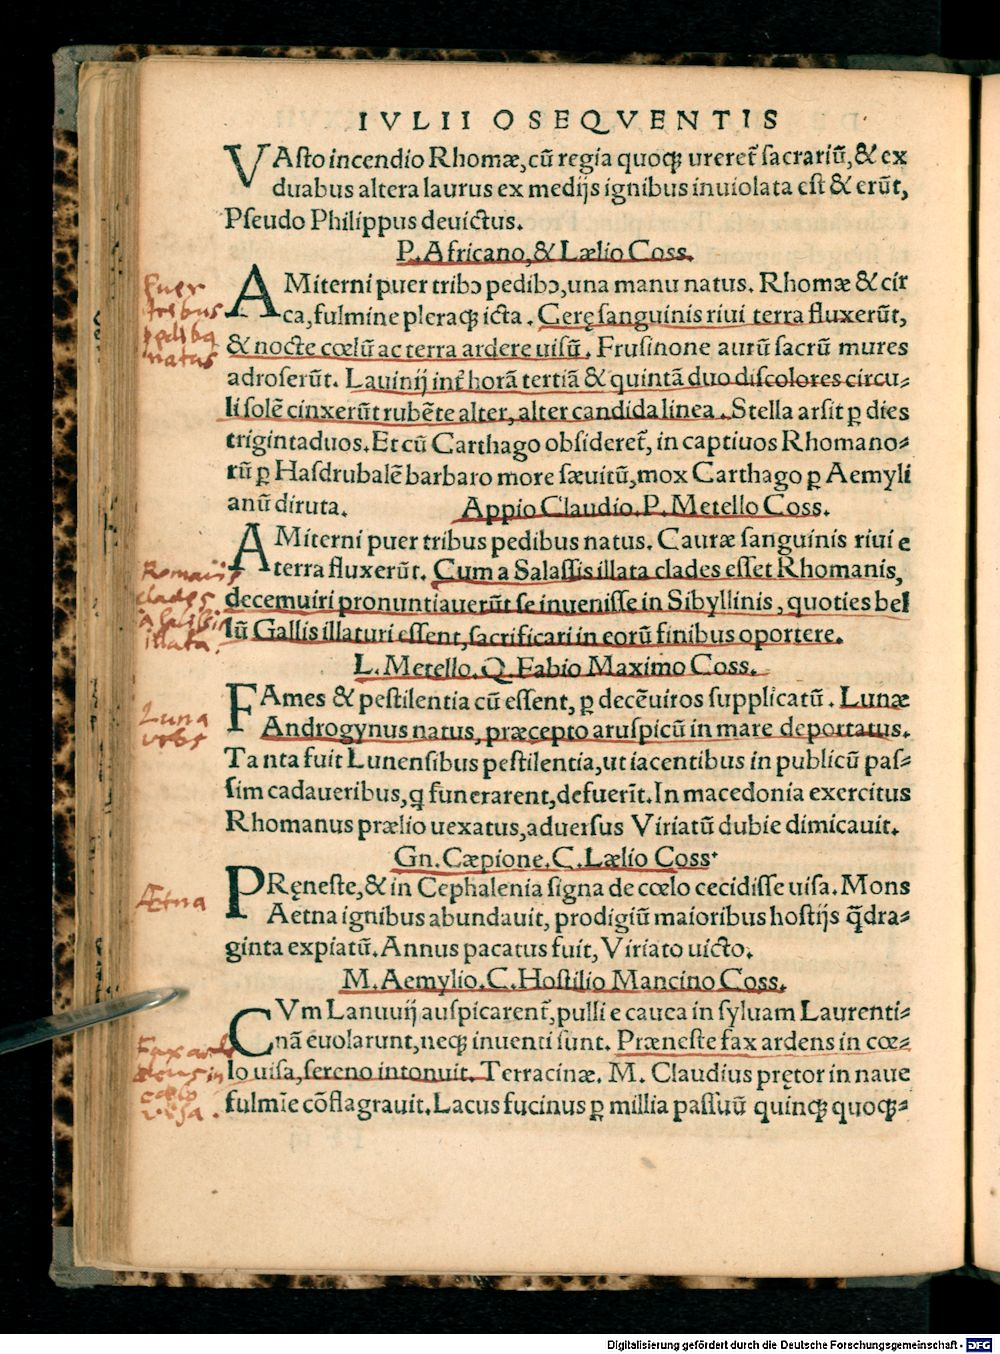 IVLII OSEQVENTIS
VAsto incendio Rhomæ,cū regia quoqꝫ ureret᷑ sacrariū,& ex
duabus altera laurus ex medijs ignibus inuiolata est & erūt,
Pseudo Philippus deuictus.
P.Africano,& Lælio Coss.
AMiterni puer tribꝰ pedibꝰ,una manu natus. Rhomæ & cir
ca,fulmine pleraqꝫ icta. Cerę sanguinis riui terra fluxerūt,
& nocte cœlū ac terra ardere uisū. Frusinone aurū sacrū mures
adroserūt. Lauinij int᷑ horā tertiā & quintā duo discolores circu-
li solē cinxerūt rubēte alter, alter candida linea. Stella arsit ꝑ dies
trigintaduos.Et cū Carthago obsideret᷑, in captiuos Rhomano-
rū ꝑ Hasdrubalē barbaro more sæuitū,mox Carthago ꝑ Aemyli
anū diruta.
Appio Claudio.P.Metello Coss.
AMiterni puer tribus pedibus natus. Cauræ sanguinis riui e
terra fluxerūt. Cum a Salassis illata clades esset Rhomanis,
decemuiri pronuntiauerūt se inuenisse in Sibyllinis, quoties bel
lū Gallis illaturi essent,sacrificari in eorū finibus oportere.
L.Metello.Q.Fabio Maximo Coss.
FAmes & pestilentia cū essent, ꝑ decēuiros supplicatū. Lunæ
Androgynus natus, præcepto aruspicū in mare deportatus.
Tanta fuit Lunensibus pestilentia,ut iacentibus in publicū pas-
sim cadaueribus,q funerarent,defuerīt.In macedonia exercitus
Rhomanus prælio uexatus,aduersus Viriatū dubie dimicauit.
Gn.Cæpione.C.Lælio Coss.
PRęneste,& in Cephalenia signa de cœlo cecidisse uisa. Mons
Aetna ignibus abundauit, prodigiū maioribus hostijs q̄dra-
ginta expiatū.Annus pacatus fuit, Viriato uicto.
M.Aemylio.C.Hostilio Mancino Coss.
CVm Lanuuij auspicarent᷑,pulli e cauea in syluam Laurenti-
nā euolarunt,neqꝫ inuenti sunt. Præneste fax ardens in cœ-
lo uisa,sereno intonuit. Terracinæ. M. Claudius prętor in naue
fulmīe cōflagrauit.Lacus fucinus ꝑ millia passuū quinqꝫ quoqꝫ-
Puer
tribus
pedibꝰ
natus
Romanis
clades
illata.
Luna
urbs
Ætna
Fax ar
dens in
cœlo
visa.
Digitalisierung gefördert durch die Deutsche Forschungsgemeinschaft - DFG